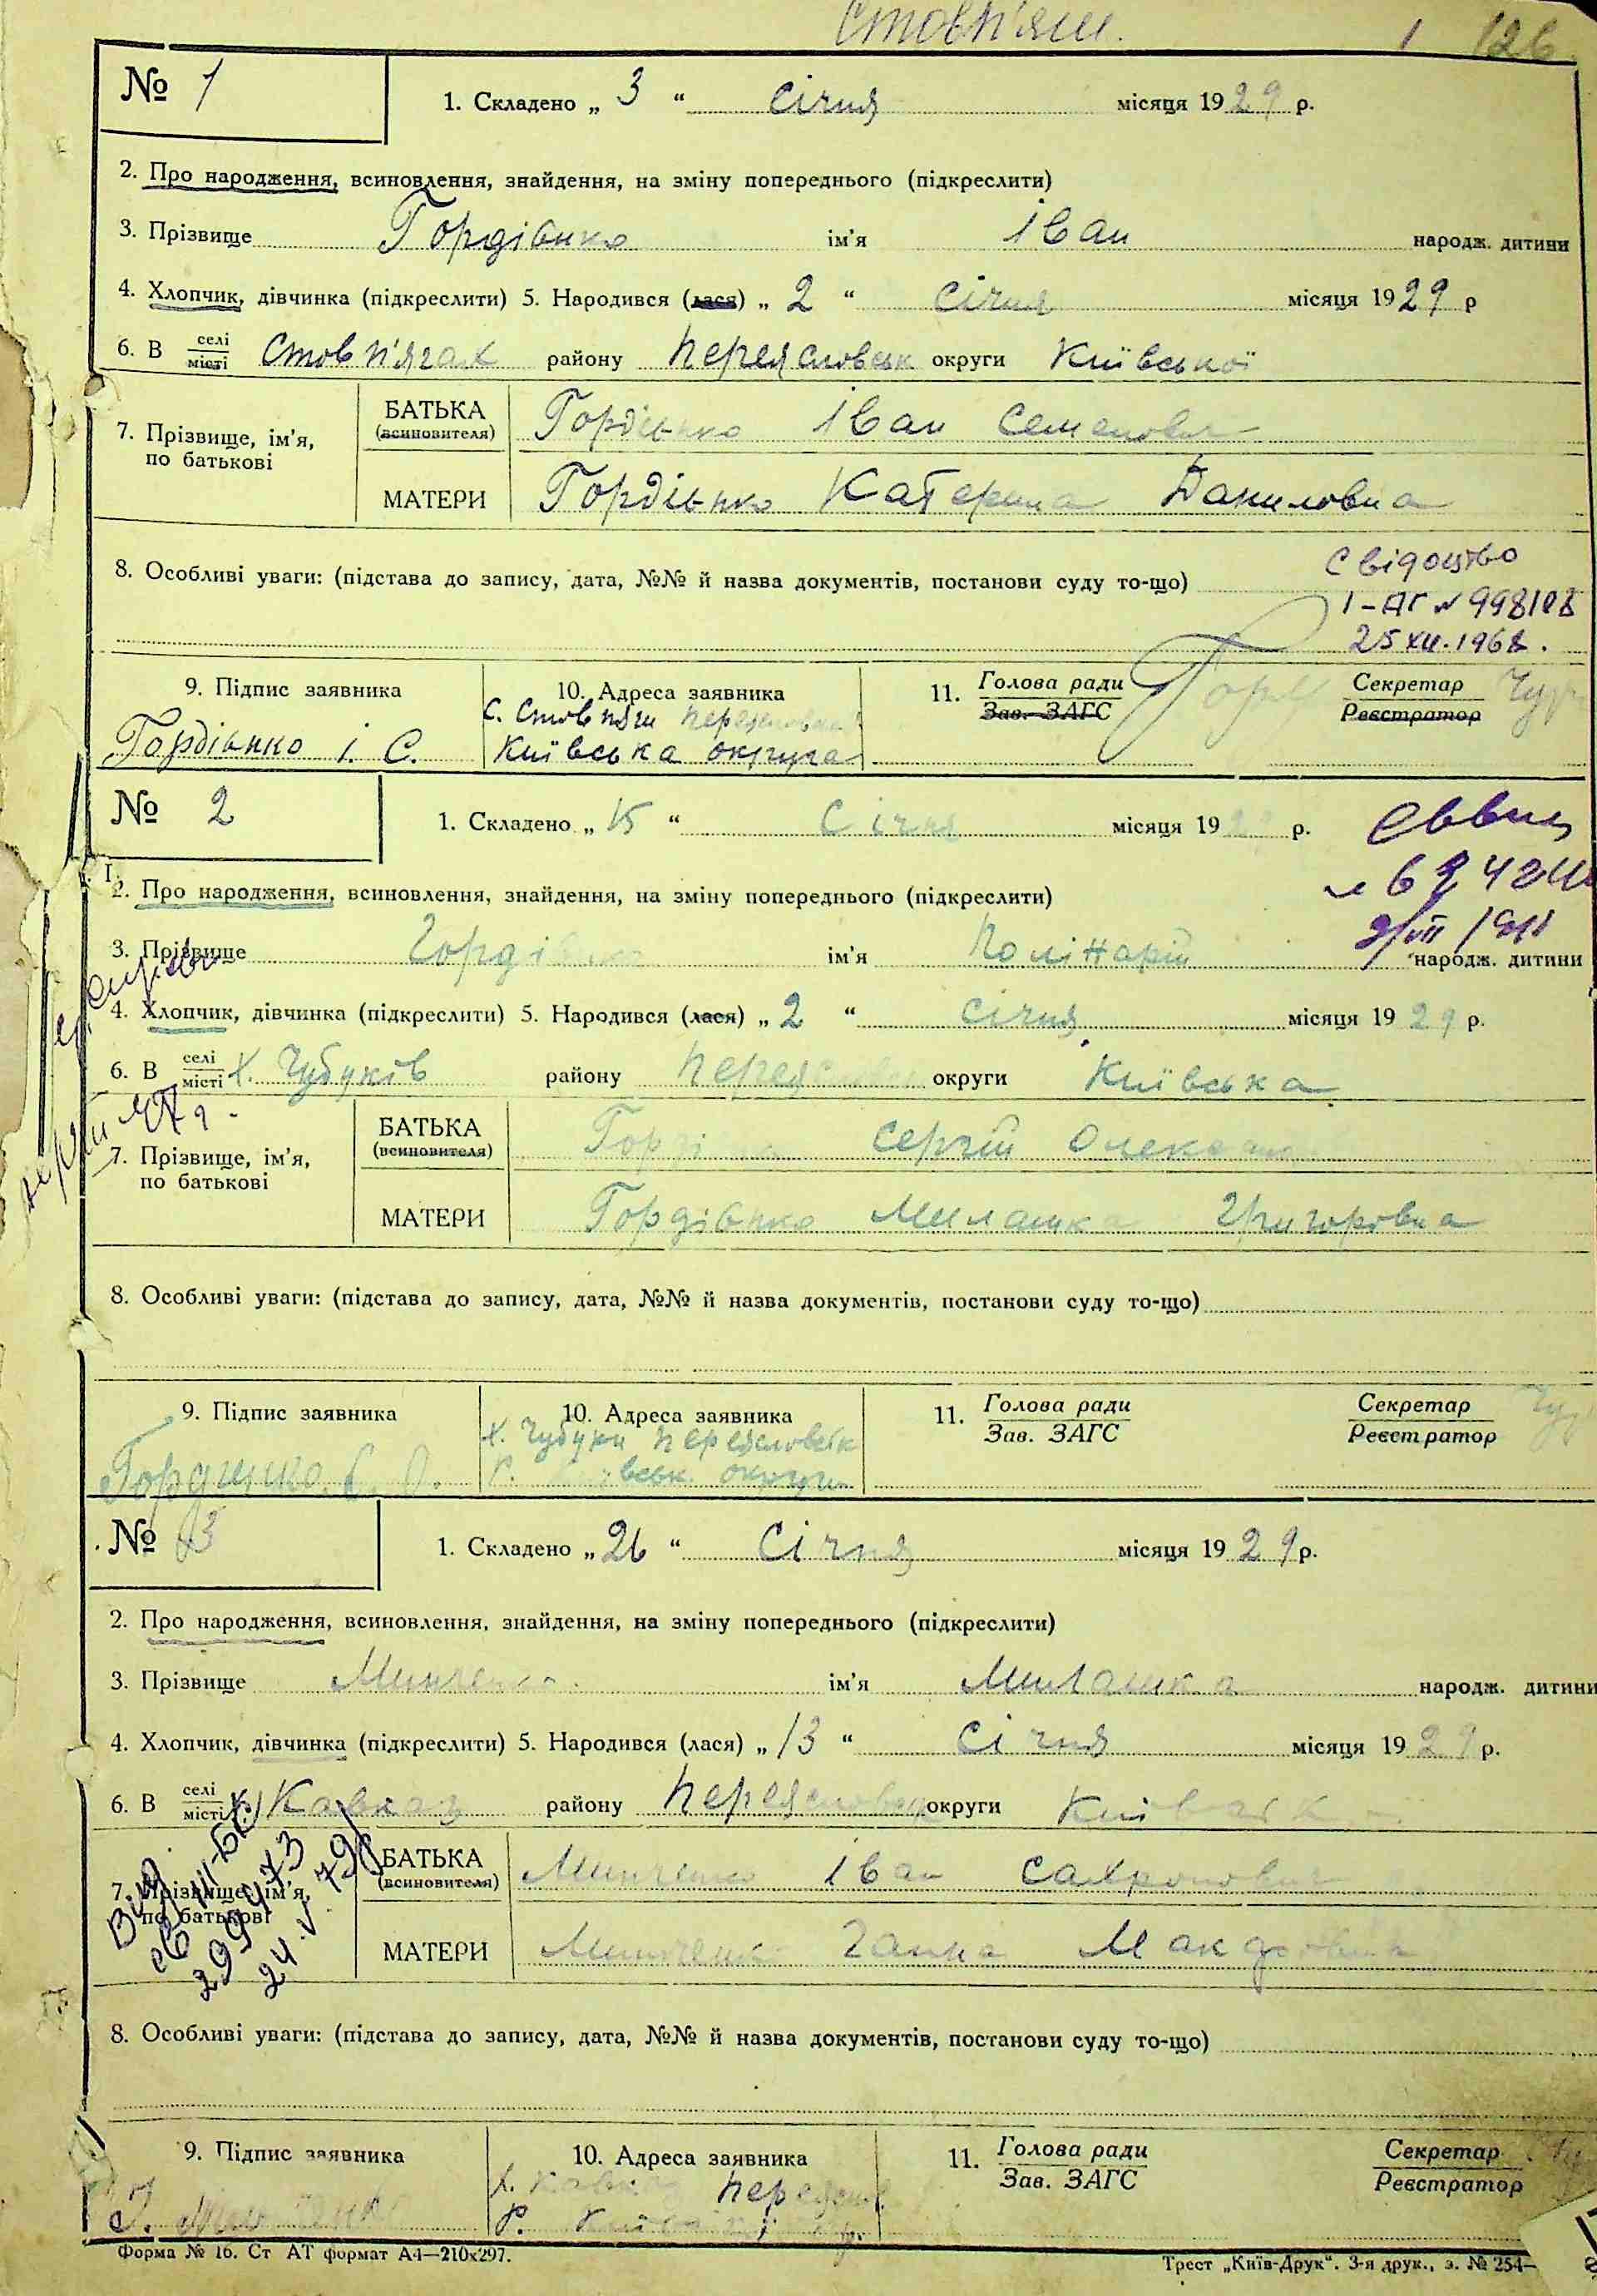 Стовп'яги. 1 126
№ 1 1. Складено „ 3 “ січня місяця 1929 р.
2. Про народження, всиновлення, знайдення, на зміну попереднього (підкреслити)
3. Прізвище Гордієнко ім'я Іван народж. дитини
4. Хлопчик, дівчинка (підкреслити) 5. Народився (лася) „ 2 “ січня місяця 1929 р
6. В селі/місті Стовп'ягах району Переясловськ округи Київської
7. Прізвище, ім'я, по батькові
БАТЬКА (всиновителя) Гордієнко Іван Семенович
МАТЕРИ Гордієнко Катерина Даниловна
8. Особливі уваги: (підстава до запису, дата, №№ й назва документів, постанови суду то-що) Свідоцтво
І-АГ № 998108
25 XII. 1968.
9. Підпис заявника 10. Адреса заявника 11. Голова ради/Зав. ЗАГС Секретар/Реєстратор
с. Стовпяги
Гордієнко І. С. Київська округа
№ 2 1. Складено „ 15 “ Січня місяця 19 р.
2. Про народження, всиновлення, знайдення, на зміну попереднього (підкреслити)
3. Прізвище Гордієнко ім'я Полінарій народж. дитини
4. Хлопчик, дівчинка (підкреслити) 5. Народився (лася) „ 2 “ січня місяця 1929 р.
6. В селі/місті х. Чубуків району округи Київська
7. Прізвище, ім'я, по батькові
БАТЬКА (всиновителя) Сергій
МАТЕРИ Гордієнко Милашка Григоровна
8. Особливі уваги: (підстава до запису, дата, №№ й назва документів, постанови суду то-що)
9. Підпис заявника 10. Адреса заявника 11. Голова ради/Зав. ЗАГС Секретар/Реєстратор
х. Чубуки Переясловськ
Гордиенко С. О. р. округи
№ 3 1. Складено „ 26 “ Січня місяця 1929 р.
2. Про народження, всиновлення, знайдення, на зміну попереднього (підкреслити)
3. Прізвище Минченко ім'я Милашка народж. дитини
4. Хлопчик, дівчинка (підкреслити) 5. Народився (лася) „ 13 “ Січня місяця 1929 р.
6. В селі/місті х. Кавказ району округи
7. Прізвище, ім'я, по батькові
БАТЬКА (всиновителя) Минченко Іван Сахронович
МАТЕРИ Минченко Ганна
299473
24. V 79
8. Особливі уваги: (підстава до запису, дата, №№ й назва документів, постанови суду то-що)
9. Підпис заявника 10. Адреса заявника 11. Голова ради/Зав. ЗАГС Секретар/Реєстратор
х. Кавказ
Форма № 16. Ст АТ формат А4—210х297.
Трест „Київ-Друк“. 3-я друк., з. № 254—